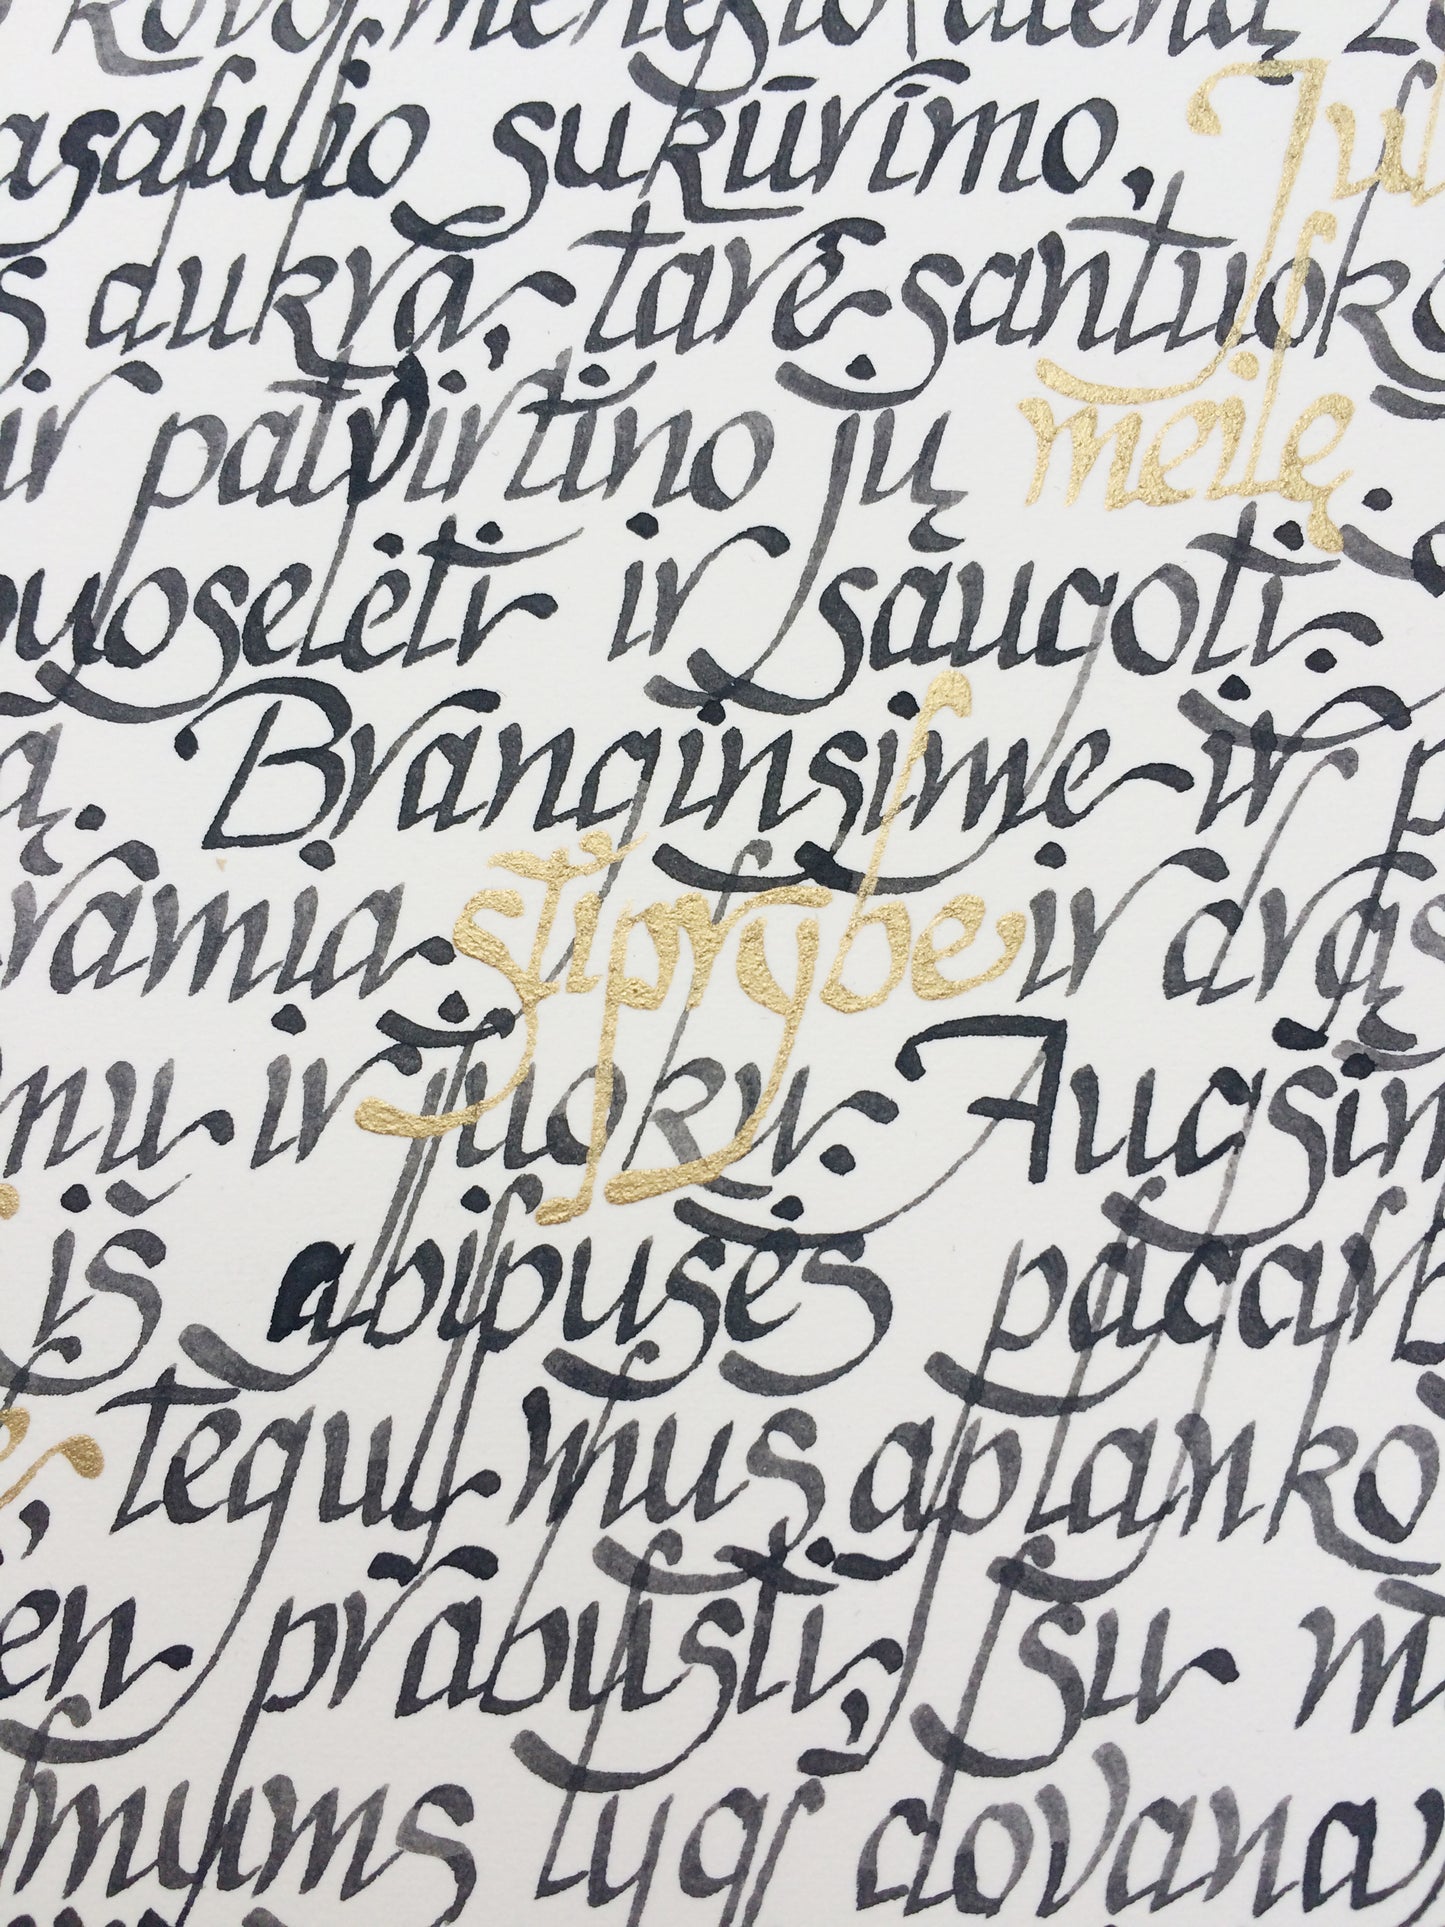 kovo mėnesio dieną
asaulio sukūrimo, Jul
s dukra, tarė santuok
ir patvirtino jų meilę.
puoselėti ir saugoti.
ą. Branginsime ir p
ramia stiprybe ir drąs
mu ir juoku. Augsim
iš abipusės pagarb
e, tegul mus aplanko
en prabusti, su m
mums lygi dovana